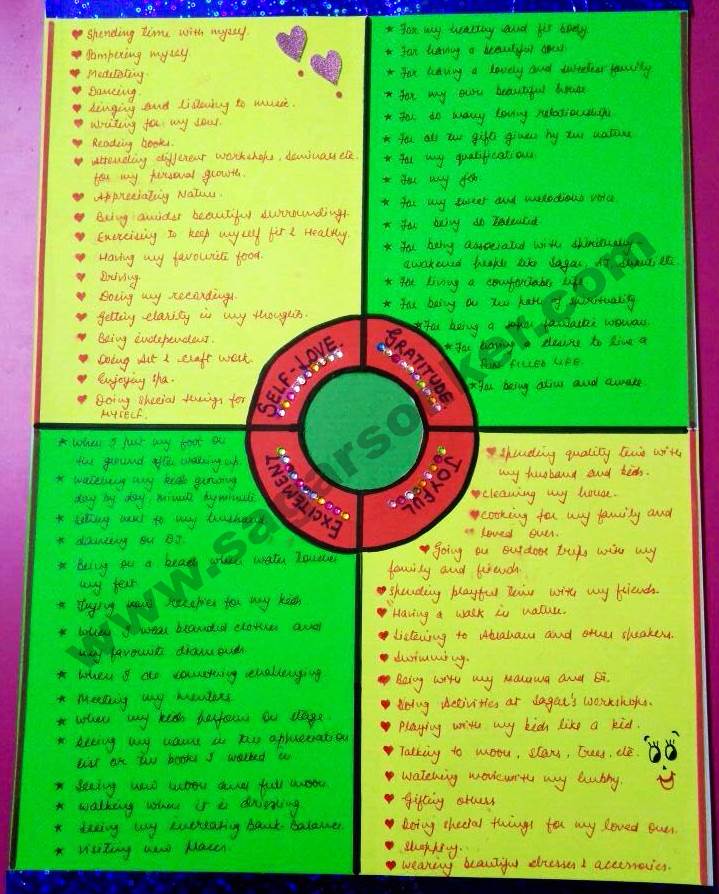 Spending time with myself.
Pampering myself.
Meditating.
Dancing.
Singing and listening to music.
Writing for my soul.
Reading books.
Attending different workshops, seminars etc.
for my personal growth.
Appreciating Nature.
Being amidst beautiful surroundings.
Exercising to keep myself fit & Healthy.
Having my favourite food.
Driving.
Doing my recordings.
Getting clarity in my thoughts.
Being independent.
Doing Art & craft work.
Enjoying spa.
Doing special things for
MYSELF.
For my healthy and fit body.
For having a beautiful soul.
For having a lovely and sweetest family
For my own beautiful house
For so many loving relationships
For all the gifts given by the nature
For my qualifications
For my job.
For my sweet and melodious voice.
For being so talented
For being associated with spiritually
awakened people like Sagar, etc.
For living a comfortable life
For being on the path of spirituality
For being a super fantastic woman.
For having a desire to live a
FUN FILLED LIFE.
For being alive and awake.
SELF-LOVE
GRATITUDE
EXCITEMENT
JOYFUL
When I put my foot on
the ground after waking up.
Watching my kids growing
day by day, minute by minute.
Sitting next to my husband
dancing on DJ.
Being on a beach when water touches
my feet
Trying new recepies for my kids
When I wear branded clothes and
my favourite diamonds.
When I do something challenging
Meeting my mentors.
When my kids perform on stage.
Seeing my name in the appreciation
list or the books I walked in
Seeing new moon and full moon.
Walking when it is drizzling
Seeing my everlasting Bank Balance.
Visiting new places.
Spending quality time with
my husband and kids.
Cleaning my house.
Cooking for my family and
loved ones.
Going on outdoor trips with my
family and friends.
Spending playful time with my friends.
Having a walk in nature.
Listening to Abraham and other speakers.
Swimming.
Being with my mamma and Di.
Doing Activities at Sagar's workshops.
Playing with my kids like a kid.
Talking to moon, stars, trees, etc.
Watching movie with my hubby.
Gifting others
Doing special things for my loved ones.
Shopping.
Wearing beautiful dresses & accessories.
www.sagarsonker.com